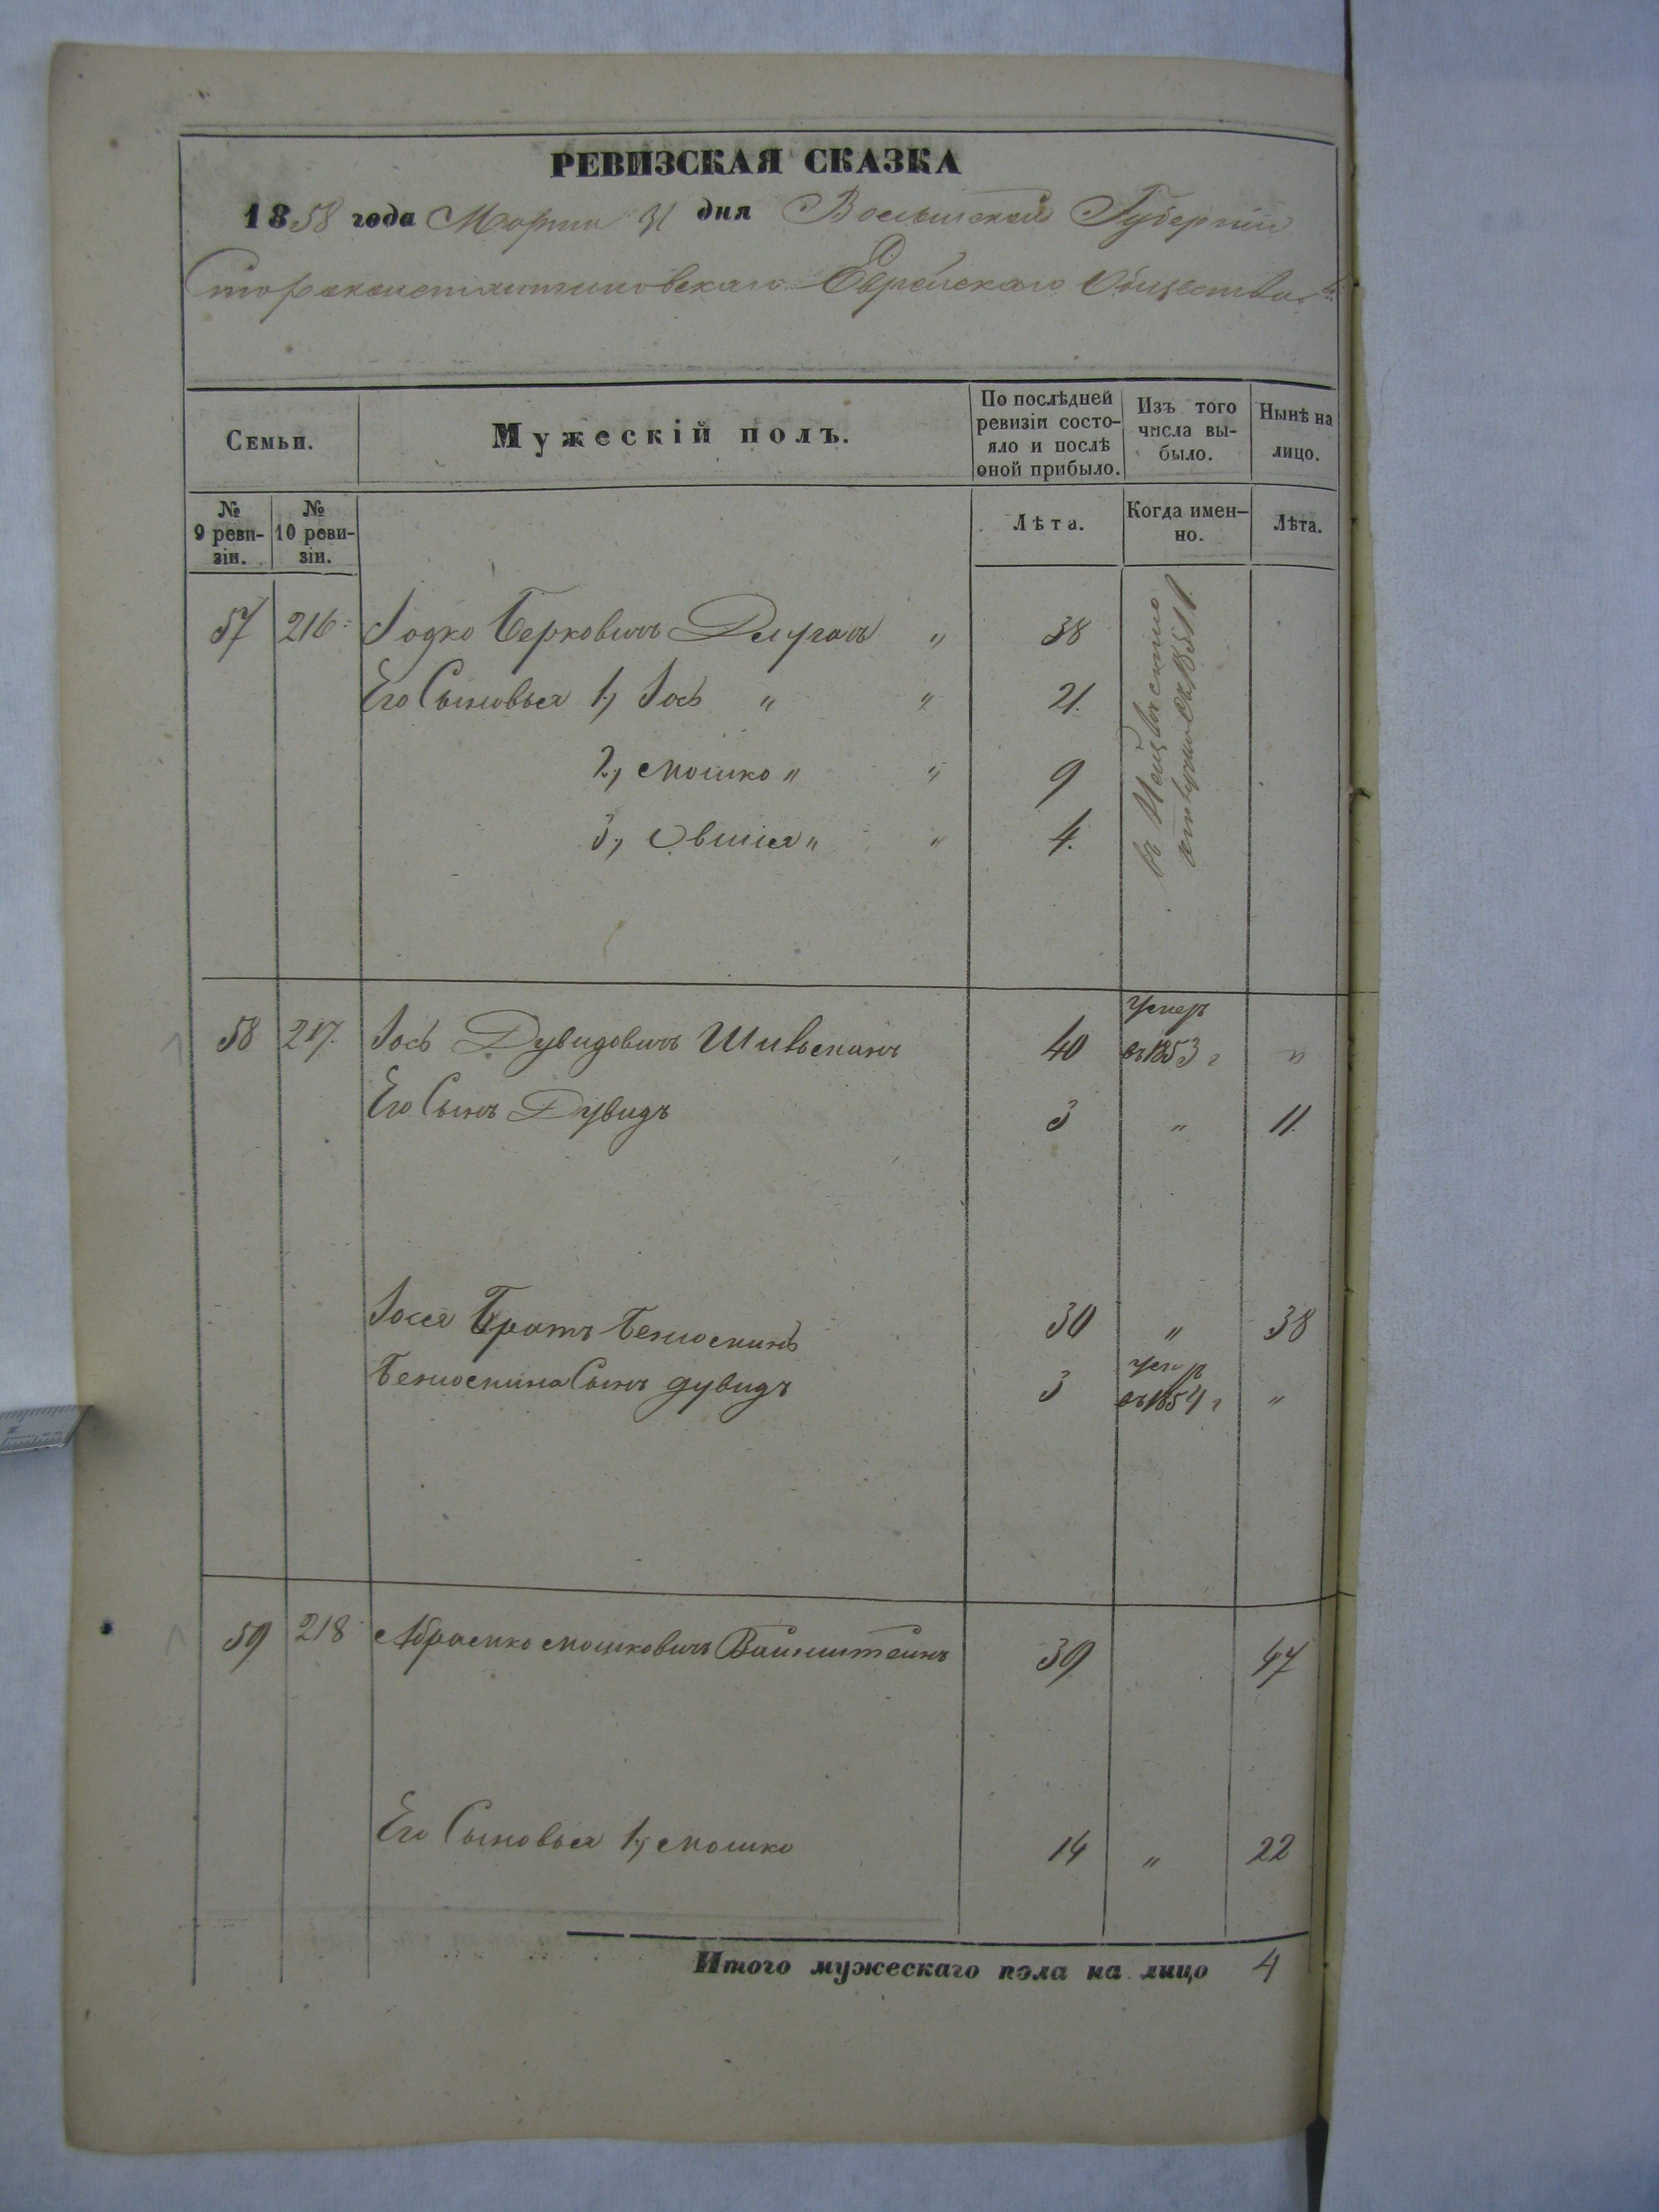 РЕВИЗСКАЯ СКАЗКА
1858 года Марта 31 дня Волынской Губерніи
Староконстантиновскаго Еврейскаго Общества
Семьи.
Мужескій полъ.
По послѣдней ревизіи состо-
яло и послѣ
оной прибыло.
Изъ того
числа вы-
было.
Нынѣ на
лицо.
№
9 реви-
зіи.
№
10 реви-
зіи.
Лѣта.
Когда имен-
но.
Лѣта.
57 216 Іодко Берковичъ 38
Его Сыновья 1, Іось " " 21.
2, Мошко " " 9
3, Овшія " " 4.
въ 1851 г.
58 217. Іось Дувидовичъ 40 Умеръ въ 1853 г "
Его Сынъ Дувидъ 3 " 11.
Іося Братъ Беніоминъ 30 " 38
Беніомина Сынъ Дувидъ 3 умеръ въ 1854 г "
59 218 Абрамко Мошковичъ Вайнштейнъ 39 47
Его Сыновья 1, Мошко 14 " 22
Итого мужескаго пола на лицо 4